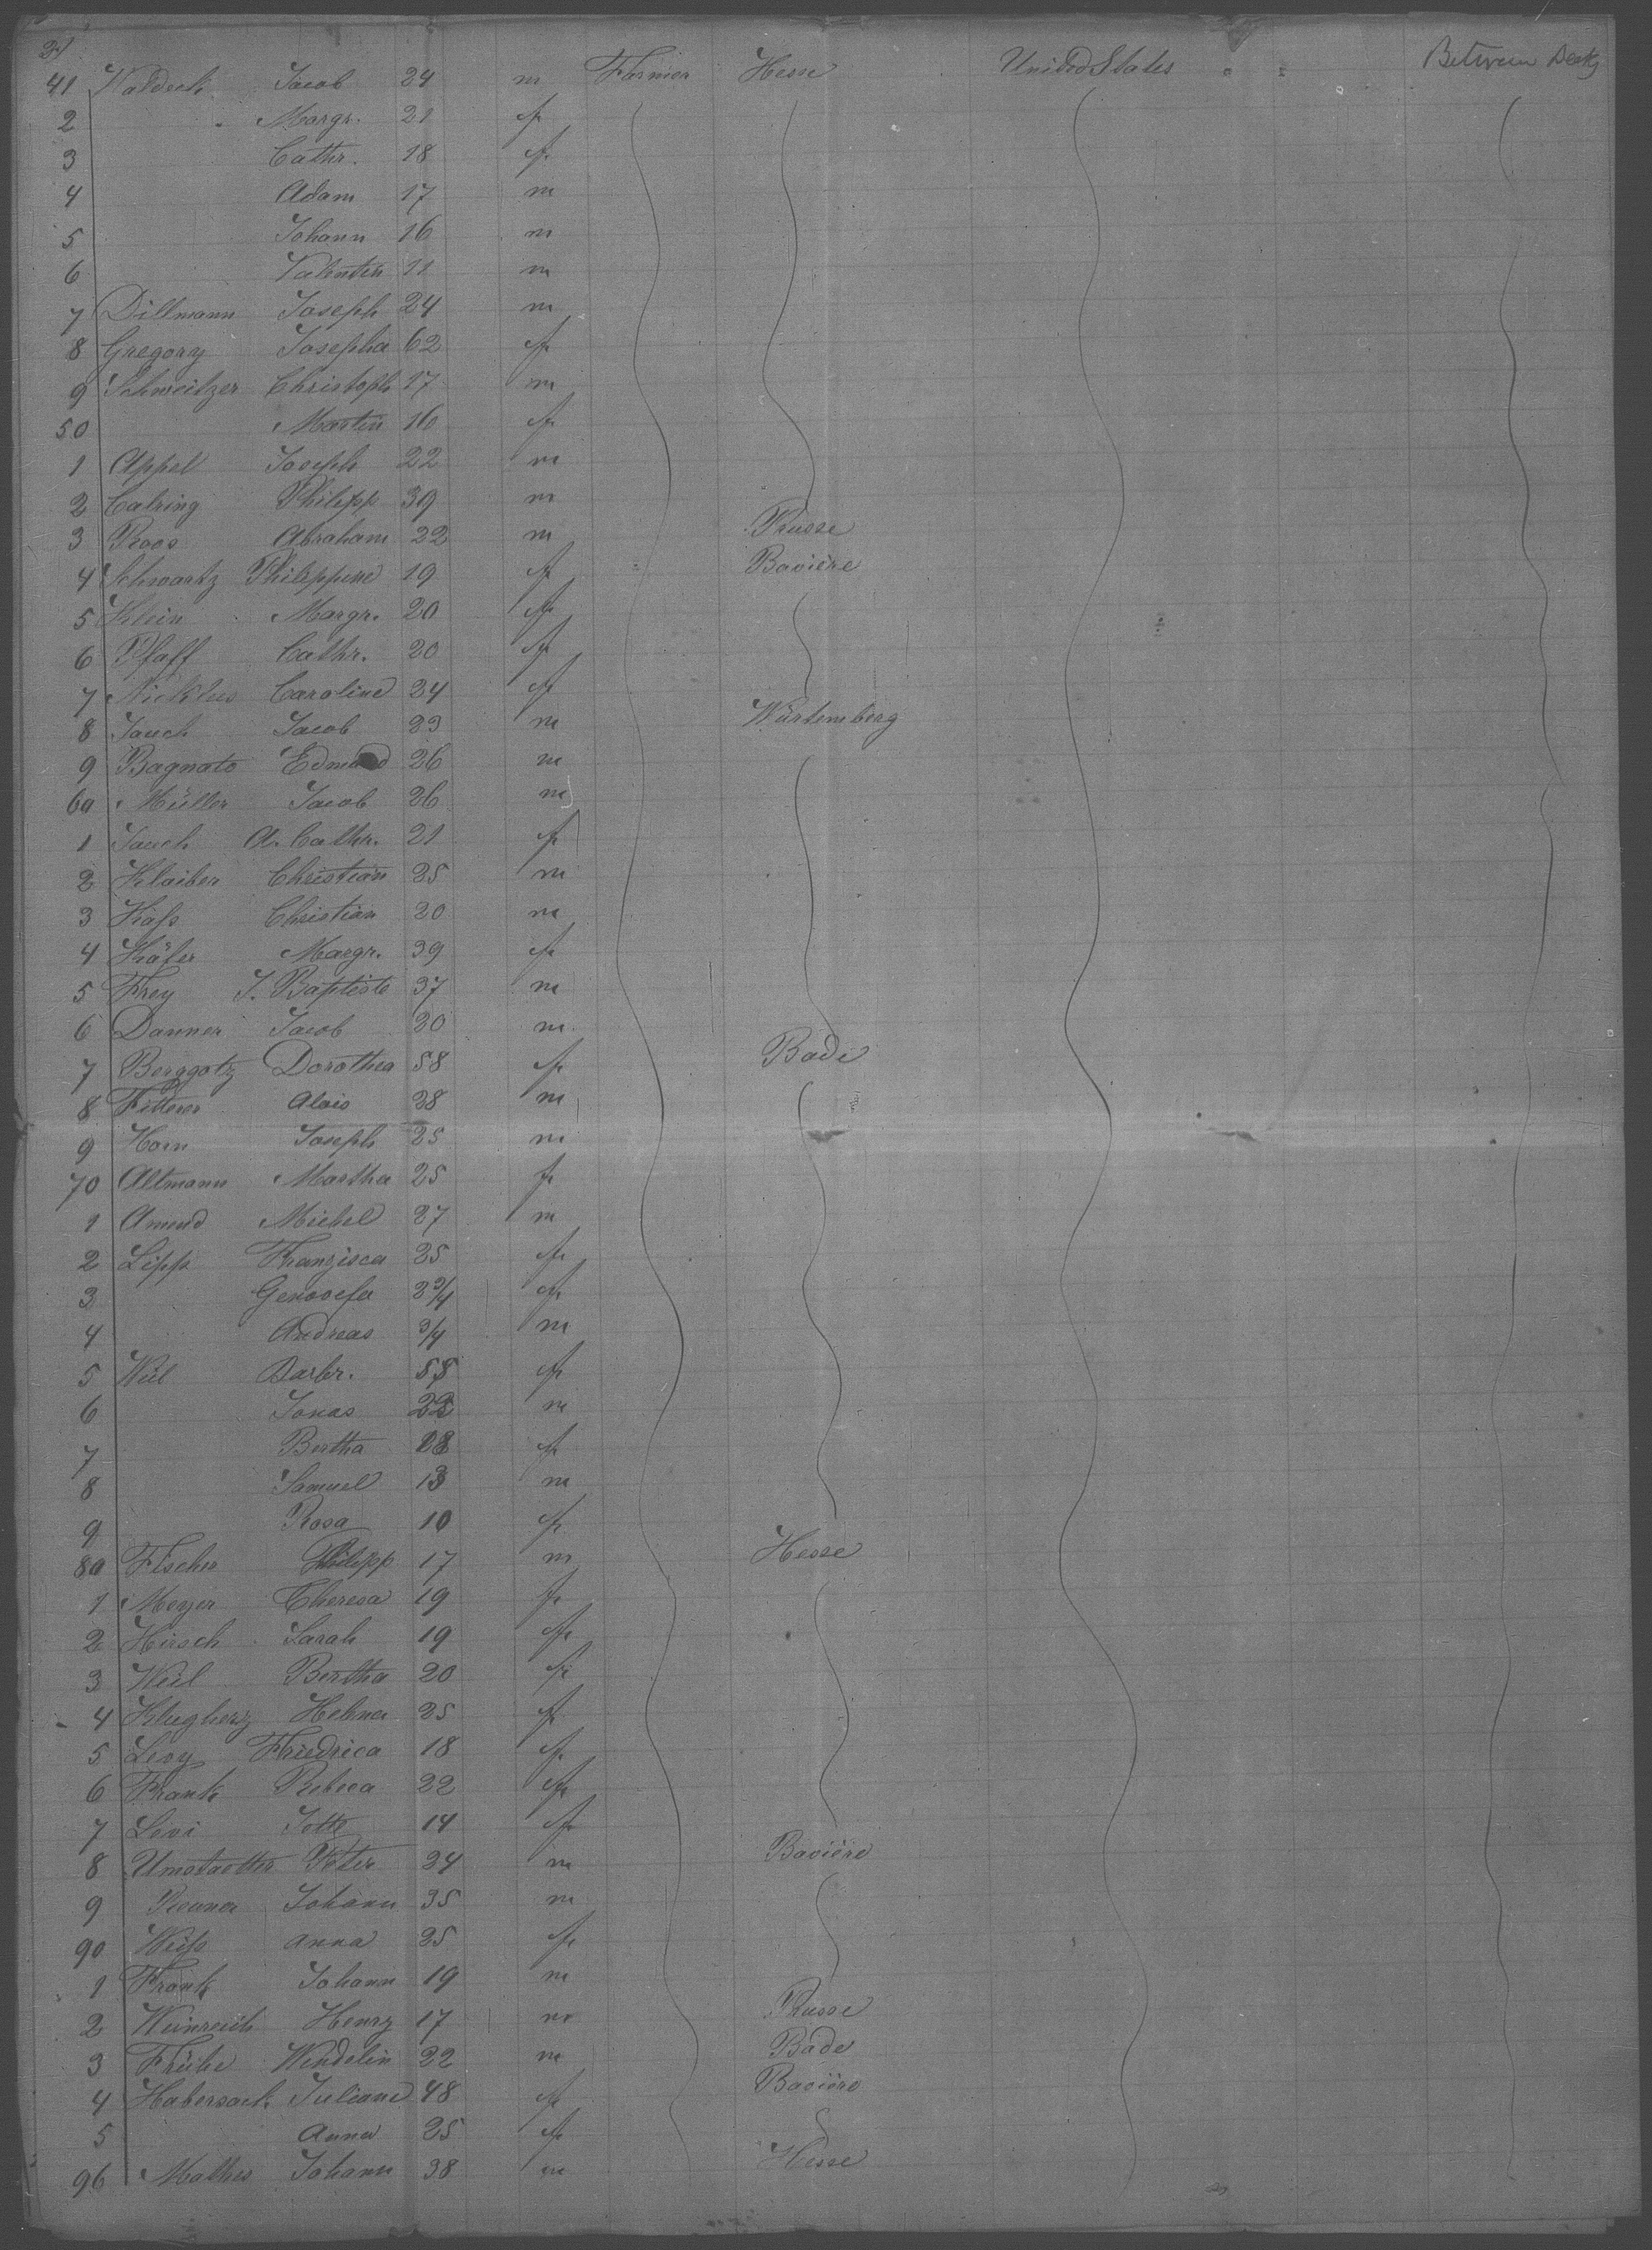 21
41 Waldeck Jacob 24 m Farmer Hesse United States Between Decks
2 Margr. 21 f
3 Cathr. 18 f
4 Adam 17 m
5 Johann 16 m
6 Valentin 11 m
7 Dillmann Joseph 24 m
8 Gregory Josepha 62 f
9 Schweitzer Christoph 17 m
50 Martin 16 f
1 Appel Joseph 22 m
2 Calring Philipp 39 m
3 Roos Abraham 22 m Prusse
4 Schwartz Philippine 19 f Bavière
5 Klein Margr. 20 f
6 Pfaff Cathr. 20 f
7 Nicklus Caroline 24 f
8 Jauch Jacob 23 m Würtemberg
9 Bagnato Edmund 26 m
60 Müller Jacob 26 m
1 Jauch A. Cathr. 21 f
2 Klaiber Christian 25 m
3 Käss Christian 20 m
4 Käfer Margr. 39 f
5 Frey J. Baptiste 37 m
6 Danner Jacob 20 m
7 Berggotz Dorothea 58 f Bade
8 Fitterer Alois 28 m
9 Horn Joseph 25 m
70 Altmann Martha 25 f
1 Amend Michel 27 m
2 Lipp Franzisca 25 f
3 Genovefa 2 3/4 f
4 Andreas 3/4 m
5 Weil Barbr. f
6 Jonas m
7 Bertha f
8 Samuel 13 m
9 Rosa 10 f
80 Fischer Philipp 17 m Hesse
1 Meyer Theresa 19 f
2 Hirsch Sarah 19 f
3 Weil Bertha 20 f
4 Klugherz Helena 25 f
5 Levy Friedrica 18 f
6 Frank Rebeca 22 f
7 Levi Jotte 14 f
8 Umstaetter Peter 24 m Bavière
9 Johann 35 m
90 Weiss Anna 25 f
1 Frank Johann 19 m
2 Weinreich Henry 17 m Prusse
3 Frühe Wendelin 22 m Bade
4 Habersack Juliane 48 f Bavière
5 Anna 25 f
96 Mathes Johann 38 m Hesse